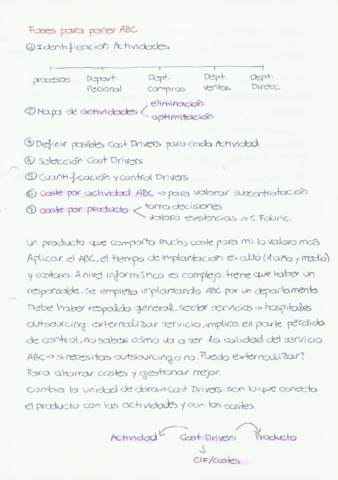 Fases para poner ABC
① Identificación Actividades
procesos Depart. Personal Dept. Compras Dept. Ventas Dept. Direcc.
② Mapa de actividades eliminación
optimización
③ Definir posibles Cost Drivers para cada Actividad
④ Selección Cost Drivers
⑤ Cuantificación y control Drivers
⑥ coste por actividad ABC → para valorar subcontratación
⑦ coste por producto toma decisiones
valora existencias → C. Fabric.
Un producto que comporta mucho coste para mi lo valoro más
Aplicar el ABC, el tiempo de implantación es alto (1 año y medio)
y costoso. A nivel informático es complejo. tiene que haber un
responsable. Se empieza implantando ABC por un departamento.
Debe haber respaldo general, sector servicios → hospitales
outsourcing: externalizar servicio, implica en parte pérdida
de control, no sabes cómo va a ser la calidad del servicio.
ABC → si necesitas outsourcing o no. Puedo externalizar?
Para ahorrar costes y gestionar mejor.
Cambia la unidad de obra → Cost Drivers: son lo que conecta
el producto con las actividades y con los costes.
Actividad Cost Drivers Producto
CIF/Costes